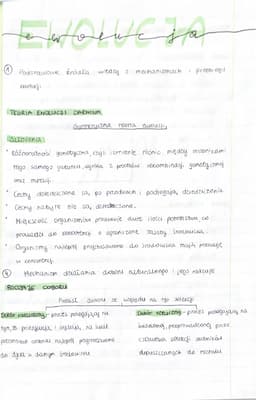 EWOLUCJA
ewolucja
① Podstawowe źródła wiedzy o mechanizmach i przebiegu
ewolucji.
TEORIA EWOLUCJI DARWINA
syntetyczna teoria ewolucji
ZAŁOŻENIA
• Różnorodność genetyczna, czyli istnienie różnic między organizmami
tego samego gatunku, wynika z procesów rekombinacji genetycznej
oraz mutacji.
• Cechy dziedziczone są po przodkach,
• Cechy nabyte nie są dziedziczone.
• Większość organizmów produkuje dużą ilość potomstwa, co
prowadzi do konkurencji o ograniczone zasoby środowiska.
• Organizmy najlepiej przystosowane do środowiska mają przewagę
w konkurencji.
② Mechanizm działania doboru naturalnego i jego rodzaje
RODZAJE DOBORU
Podział doboru ze względu na typ selekcji
Dobór naturalny - proces polegający na
tym, że przeżywają i wydają na świat
potomstwo osobniki najlepiej przystosowane
do życia w danym środowisku
Dobór sztuczny - proces polegający na
celowej, przeprowadzonej przez
człowieka selekcji osobników
dopuszczanych do rozrodu